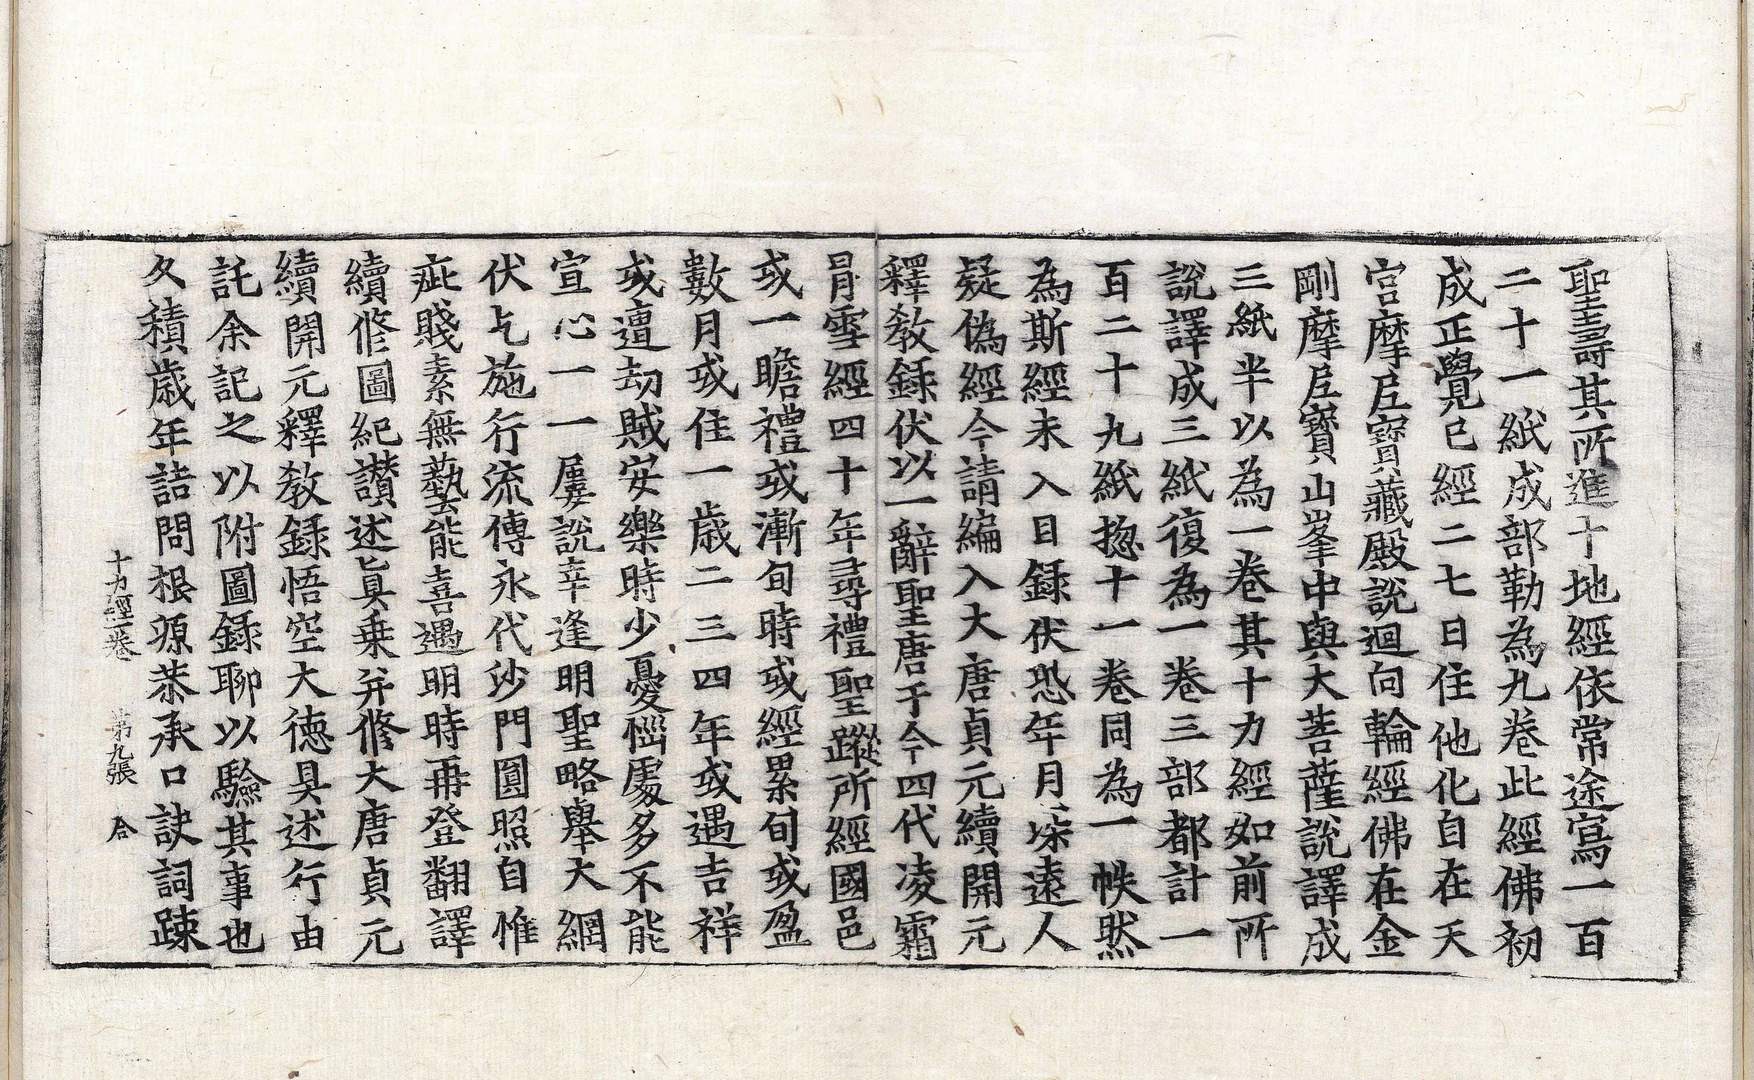 聖壽其所進十地經依常途寫一百
二十一紙成部勒為九卷此經佛初
成正覺已經二七日住他化自在天
宮摩尼寶藏殿說迴向輪經佛在金
剛摩尼寶山峯中與大菩薩說譯成
三紙半以為一卷其十力經如前所
說譯成三紙復為一卷三部都計一
百二十九紙惣十一卷同為一帙然
為斯經未入目録伏恐年月深遠人
疑偽經今請編入大唐貞元續開元
釋教録伏以一辭聖唐于今四代凌霜
冐雪經四十年尋禮聖蹤所經國邑
或一瞻禮或漸旬時或經累旬或盈
數月或住一歲二三四年或遇吉祥
或遭劫賊安樂時少憂惱處多不能
宣心一一屢說幸逢明聖略舉大綱
伏乞施行流傳永代沙門圓照自惟
疵賤素無藝能喜遇明時再登翻譯
續修圖紀讚述真乗并修大唐貞元
續開元釋教録悟空大德具述行由
託余記之以附圖録聊以驗其事也
久積歲年詰問根源恭承口訣詞疎
十力經卷 第九張 合